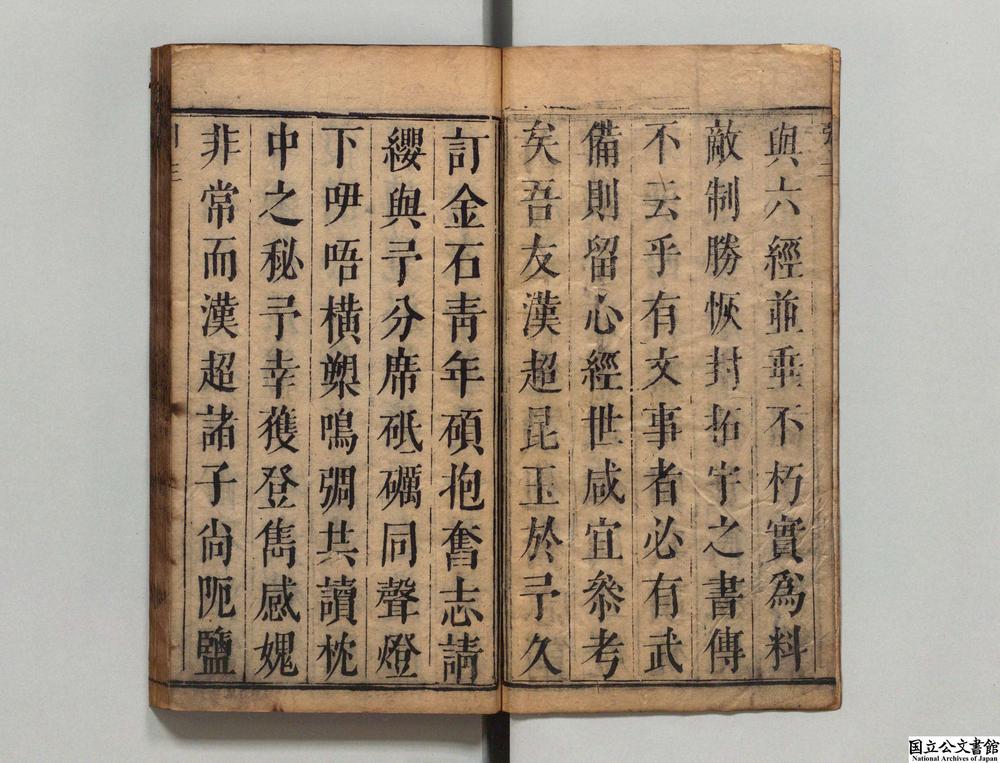 與六經並垂不朽實爲料
敵制勝恢封拓宇之書傳
不云乎有文事者必有武
備則留心經世咸宜叅考
矣吾友漢超昆玉於予久
訂金石靑年碩抱奮志請
纓與予分席砥礪同聲燈
下吚唔橫槊鳴弰共讀枕
中之秘予幸獲登雋感媿
非常而漢超諸子尙阨鹽
国立公文書館
National Archives of Japan